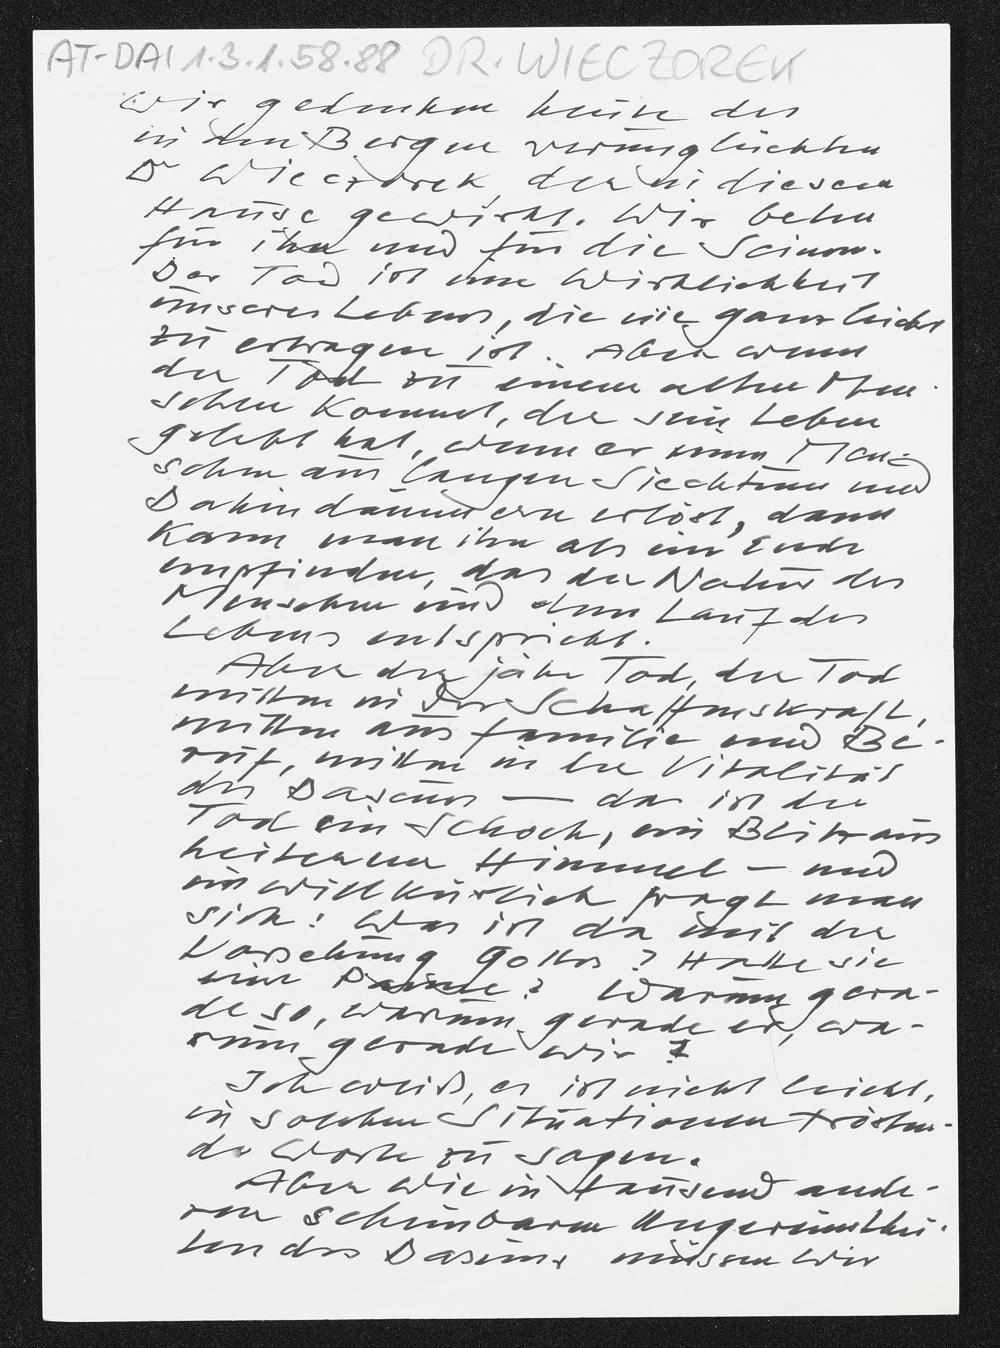 AT-DAI 1.3.1.58.88 DR. WIECZOREK
Wir gedenken heute des
in den Bergen verunglückten
Dr Wieczorek, der in diesem
Hause gewirkt. Wir beten
für ihn und für die Seinen.
Der Tod ist eine Wirklichkeit
unseres Lebens, die nie ganz leicht
zu ertragen ist. Aber wenn
der Tod zu einem alten Men-
schen kommt, der sein Leben
gelebt hat, wenn er einen Men-
schen aus langen Siechtum und
Dahindämmern erlöst, dann
kann man ihn als ein Ende
empfinden, das der Natur des
Menschen und dem Lauf des
Lebens entspricht.
Aber der jähe Tod, der Tod
mitten in der Schaffenskraft,
mitten aus Familie und Be-
ruf, mitten in der Vitalität
des Daseins — da ist der
Tod ein Schock, ein Blitz aus
heiterem Himmel – und
unwillkürlich fragt man
sich: Was ist da mit der
Vorsehung Gottes? Hatte sie
eine Pause? Warum gera-
de so, warum gerade er, wa-
rum gerade wir?
Ich weiß, es ist nicht leicht,
in solchen Situationen trösten-
de Worte zu sagen.
Aber wie in tausend ande-
ren scheinbaren Ungereimthei-
ten des Daseins müssen wir